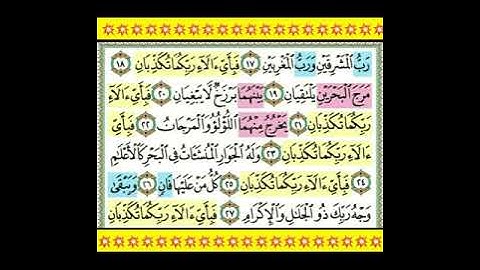 رَبُّ الْمَشْرِقَيْنِ وَرَبُّ الْمَغْرِبَيْنِ ١٧ فَبِأَيِّ ءَالَآءِ رَبِّكُمَا تُكَذِّبَانِ ١٨
مَرَجَ الْبَحْرَيْنِ يَلْتَقِيَانِ ١٩ بَيْنَهُمَا بَرْزَخٌ لَّا يَبْغِيَانِ ٢٠ فَبِأَيِّ ءَالَآءِ
رَبِّكُمَا تُكَذِّبَانِ ٢١ يَخْرُجُ مِنْهُمَا اللُّؤْلُؤُ وَالْمَرْجَانُ ٢٢ فَبِأَيِّ
ءَالَآءِ رَبِّكُمَا تُكَذِّبَانِ ٢٣ وَلَهُ الْجَوَارِ الْمُنشَئَاتُ فِي الْبَحْرِ كَالْأَعْلَٰمِ
٢٤ فَبِأَيِّ ءَالَآءِ رَبِّكُمَا تُكَذِّبَانِ ٢٥ كُلُّ مَنْ عَلَيْهَا فَانٍ ٢٦ وَيَبْقَىٰ
وَجْهُ رَبِّكَ ذُو الْجَلَٰلِ وَالْإِكْرَامِ ٢٧ فَبِأَيِّ ءَالَآءِ رَبِّكُمَا تُكَذِّبَانِ